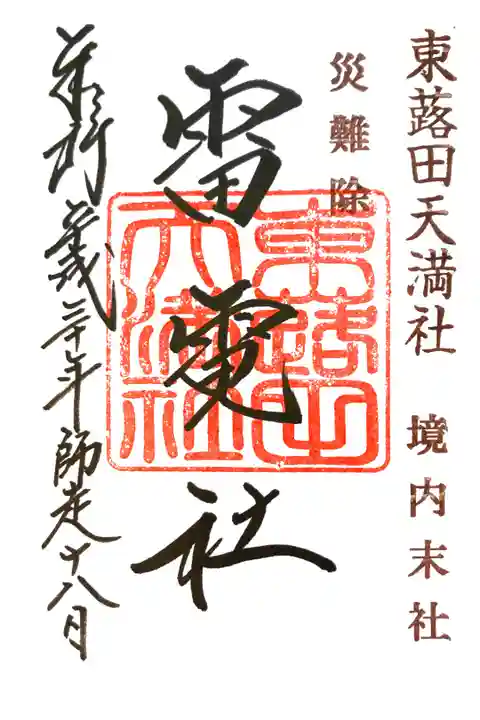 東蕗田天満社 境内末社
災難除
雷電社
東蕗田
天満社
平成三十年師走十八日